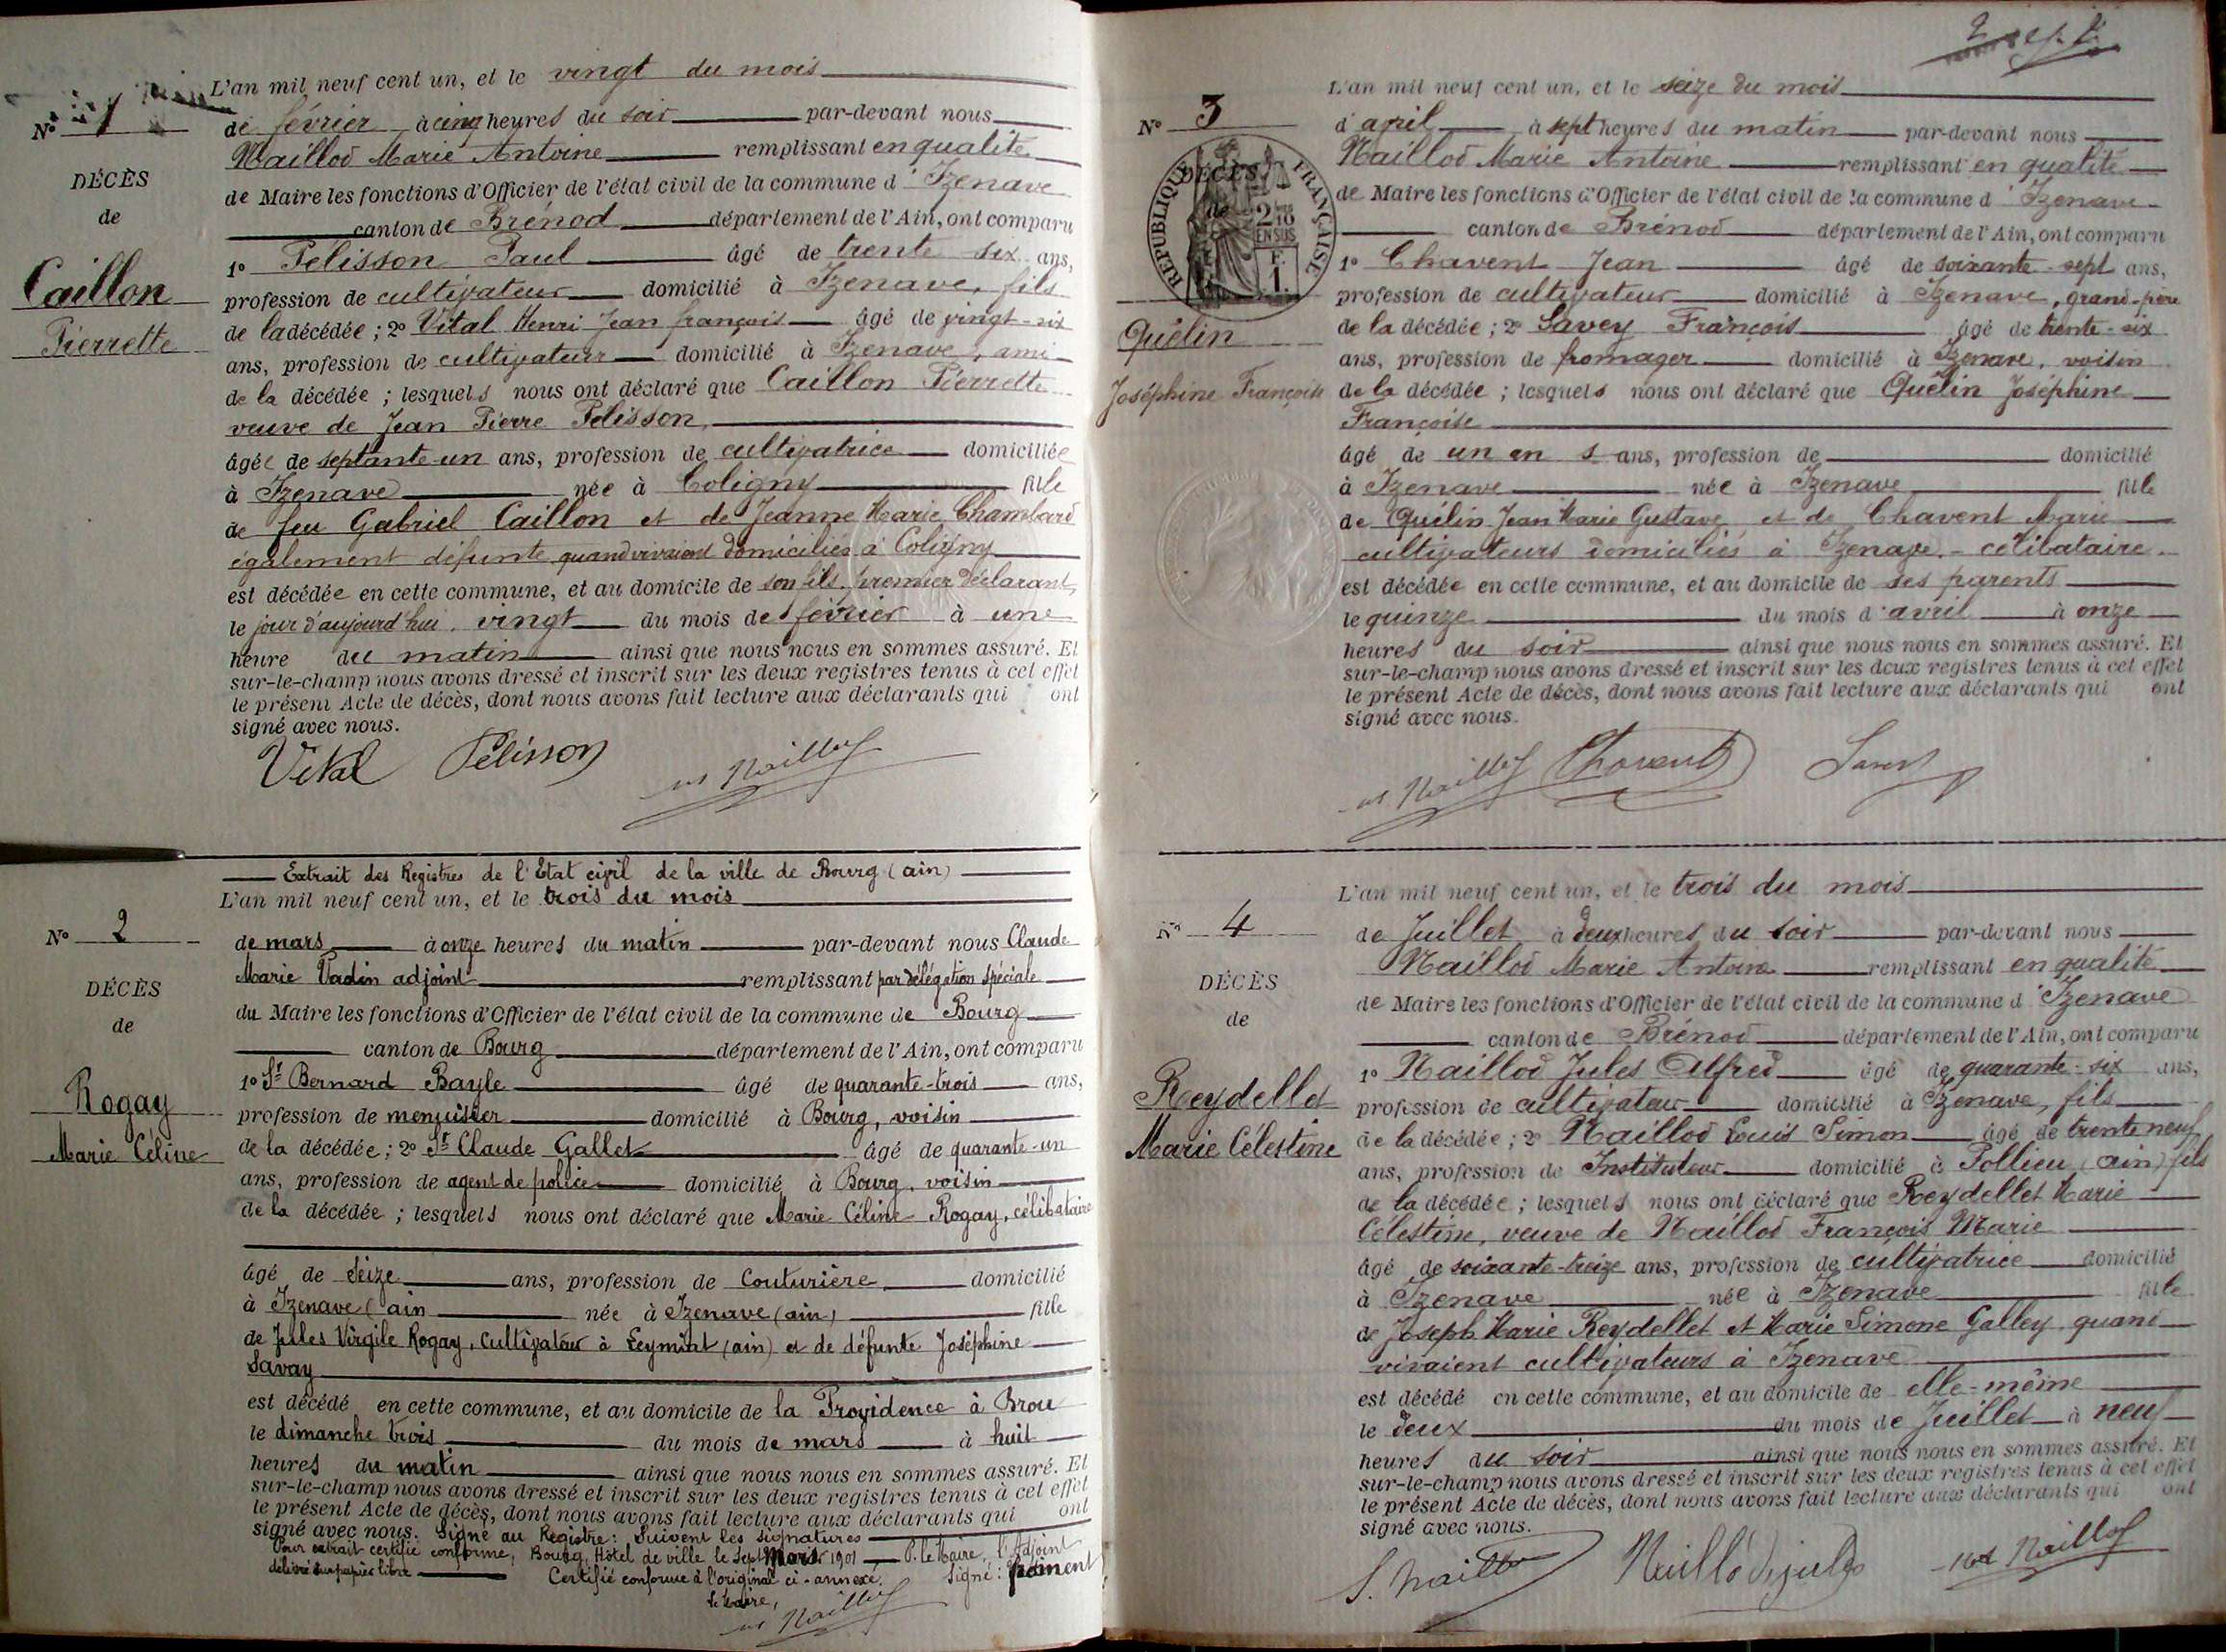 L'an mil neuf cent un, et le vingt du mois
N° 1
de février à cinq heures du soir par-devant nous
Maillod Marie Antoine remplissant en qualité
DÉCÈS
de Maire les fonctions d'Officier de l'état civil de la commune d'Izenave
de
canton de Brénod département de l'Ain, ont comparu
1° Pélisson Paul âgé de trente six ans,
Caillon
profession de cultivateur domicilié à Izenave, fils
de la décédée ; 2° Vital Henri Jean françois âgé de vingt-six
Pierrette
ans, profession de cultivateur domicilié à Izenave, ami
de la décédée ; lesquels nous ont déclaré que Caillon Pierrette
veuve de Jean Pierre Pélisson,
âgée de septante-un ans, profession de cultivatrice domiciliée
à Izenave née à Coligny fille
de feu Gabriel Caillon et de Jeanne Marie Chambard
également défunte quand vivaient domiciliés à Coligny
est décédée en cette commune, et au domicile de son fils, premier déclarant,
le jour d'aujourd'hui vingt du mois de février à une
heure du matin ainsi que nous nous en sommes assuré. Et
sur-le-champ nous avons dressé et inscrit sur les deux registres tenus à cet effet
le présent Acte de décès, dont nous avons fait lecture aux déclarants qui ont
signé avec nous.
Vital Pélisson
Extrait des Registres de l'Etat civil de la ville de Bourg (ain)
L'an mil neuf cent un, et le trois du mois
N° 2
de mars à onze heures du matin par-devant nous Claude
Marie Vadin adjoint remplissant par délégation spéciale
DÉCÈS
du Maire les fonctions d'Officier de l'état civil de la commune de Bourg
de
canton de Bourg département de l'Ain, ont comparu
1° Sr Bernard Bayle âgé de quarante-trois ans,
Rogay
profession de menuisier domicilié à Bourg, voisin
Marie Céline
de la décédée ; 2° Sr Claude Gallet âgé de quarante-un
ans, profession de agent de police domicilié à Bourg, voisin
de la décédée ; lesquels nous ont déclaré que Marie Céline Rogay, célibataire
âgé de seize ans, profession de Couturière domicilié
à Izenave (ain née à Izenave (ain) fille
de Jules Virgile Rogay, Cultivateur à Leymiat (ain) et de défunte Joséphine
Savay
est décédé en cette commune, et au domicile de la Providence à Brou
le dimanche trois du mois de mars à huit
heures du matin ainsi que nous nous en sommes assuré. Et
sur-le-champ nous avons dressé et inscrit sur les deux registres tenus à cet effet
le présent Acte de décès, dont nous avons fait lecture aux déclarants qui ont
signé avec nous. Signé au Registre : Suivent les signatures
Pour extrait certifié conforme, Bourg, Hôtel de ville le sept Mars 1901 P. le Maire, l'Adjoint
délivré sur papier libre Certifié conforme à l'original ci-annexé. Signé :
le Maire,
L'an mil neuf cent un, et le seize du mois
N° 3
d'april à sept heures du matin par-devant nous
Maillod Marie Antoine remplissant en qualité
DÉCÈS
de
RÉPUBLIQUE FRANÇAISE
2/10 EN SUS
F. 1.
de Maire les fonctions d'Officier de l'état civil de la commune d'Izenave
canton de Brénod département de l'Ain, ont comparu
1° Chavent Jean âgé de soixante-sept ans,
profession de cultivateur domicilié à Izenave, grand-père
Quélin
de la décédée ; 2° Savey François âgé de trente-six
ans, profession de fromager domicilié à Izenave, voisin
Joséphine Françoise
de la décédée ; lesquels nous ont déclaré que Quélin Joséphine
Françoise
âgé de un an s ans, profession de domicilié
à Izenave née à Izenave fille
de Quélin Jean Marie Gustave et de Chavent Marie
cultivateurs domiciliés à Izenave. - célibataire.
est décédée en cette commune, et au domicile de ses parents
le quinze du mois d'avril à onze
heures du soir ainsi que nous nous en sommes assuré. Et
sur-le-champ nous avons dressé et inscrit sur les deux registres tenus à cet effet
le présent Acte de décès, dont nous avons fait lecture aux déclarants qui ont
signé avec nous.
Chavent
L'an mil neuf cent un, et le trois du mois
N° 4
de Juillet à deux heures du soir par-devant nous
Maillod Marie Antoine remplissant en qualité
DÉCÈS
de Maire les fonctions d'Officier de l'état civil de la commune d'Izenave
de
canton de Brénod département de l'Ain, ont comparu
1° Maillod Jules Alfred âgé de quarante-six ans,
Reydellet
profession de cultivateur domicilié à Izenave, fils
Marie Célestine
de la décédée ; 2° Maillod Louis Simon âgé de trente neuf
ans, profession de Instituteur domicilié à Pollieu (ain) fils
de la décédée ; lesquels nous ont déclaré que Reydellet Marie
Célestine, veuve de Maillod François Marie
âgé de soixante-treize ans, profession de cultivatrice domicilié
à Izenave née à Izenave fille
de Joseph Marie Reydellet et Marie Simone Galley, quand
vivaient cultivateurs à Izenave
est décédé en cette commune, et au domicile de elle-même
le deux du mois de Juillet à neuf
heures du soir ainsi que nous nous en sommes assuré. Et
sur-le-champ nous avons dressé et inscrit sur les deux registres tenus à cet effet
le présent Acte de décès, dont nous avons fait lecture aux déclarants qui ont
signé avec nous.